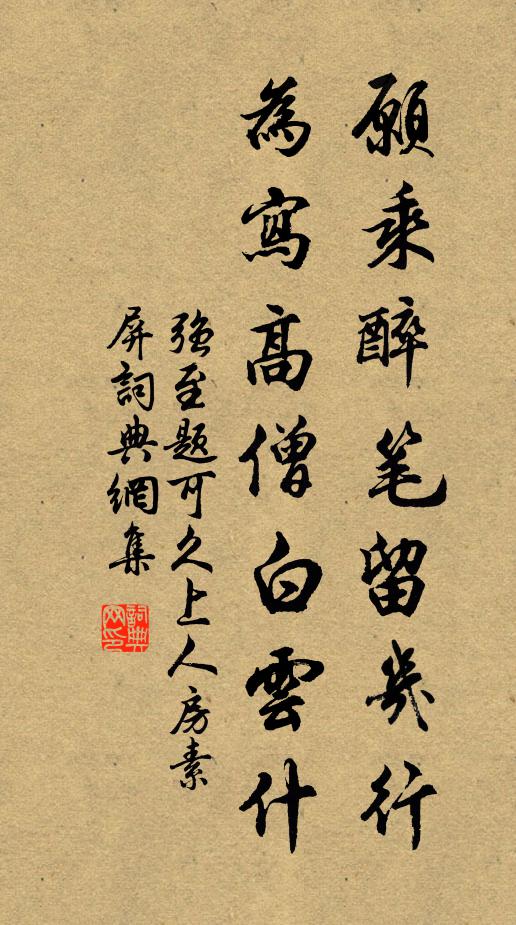 願乘醉笔留幾行
為寫高僧白雲什
強至题可久上人房素
屏詞典網集
詞典网印